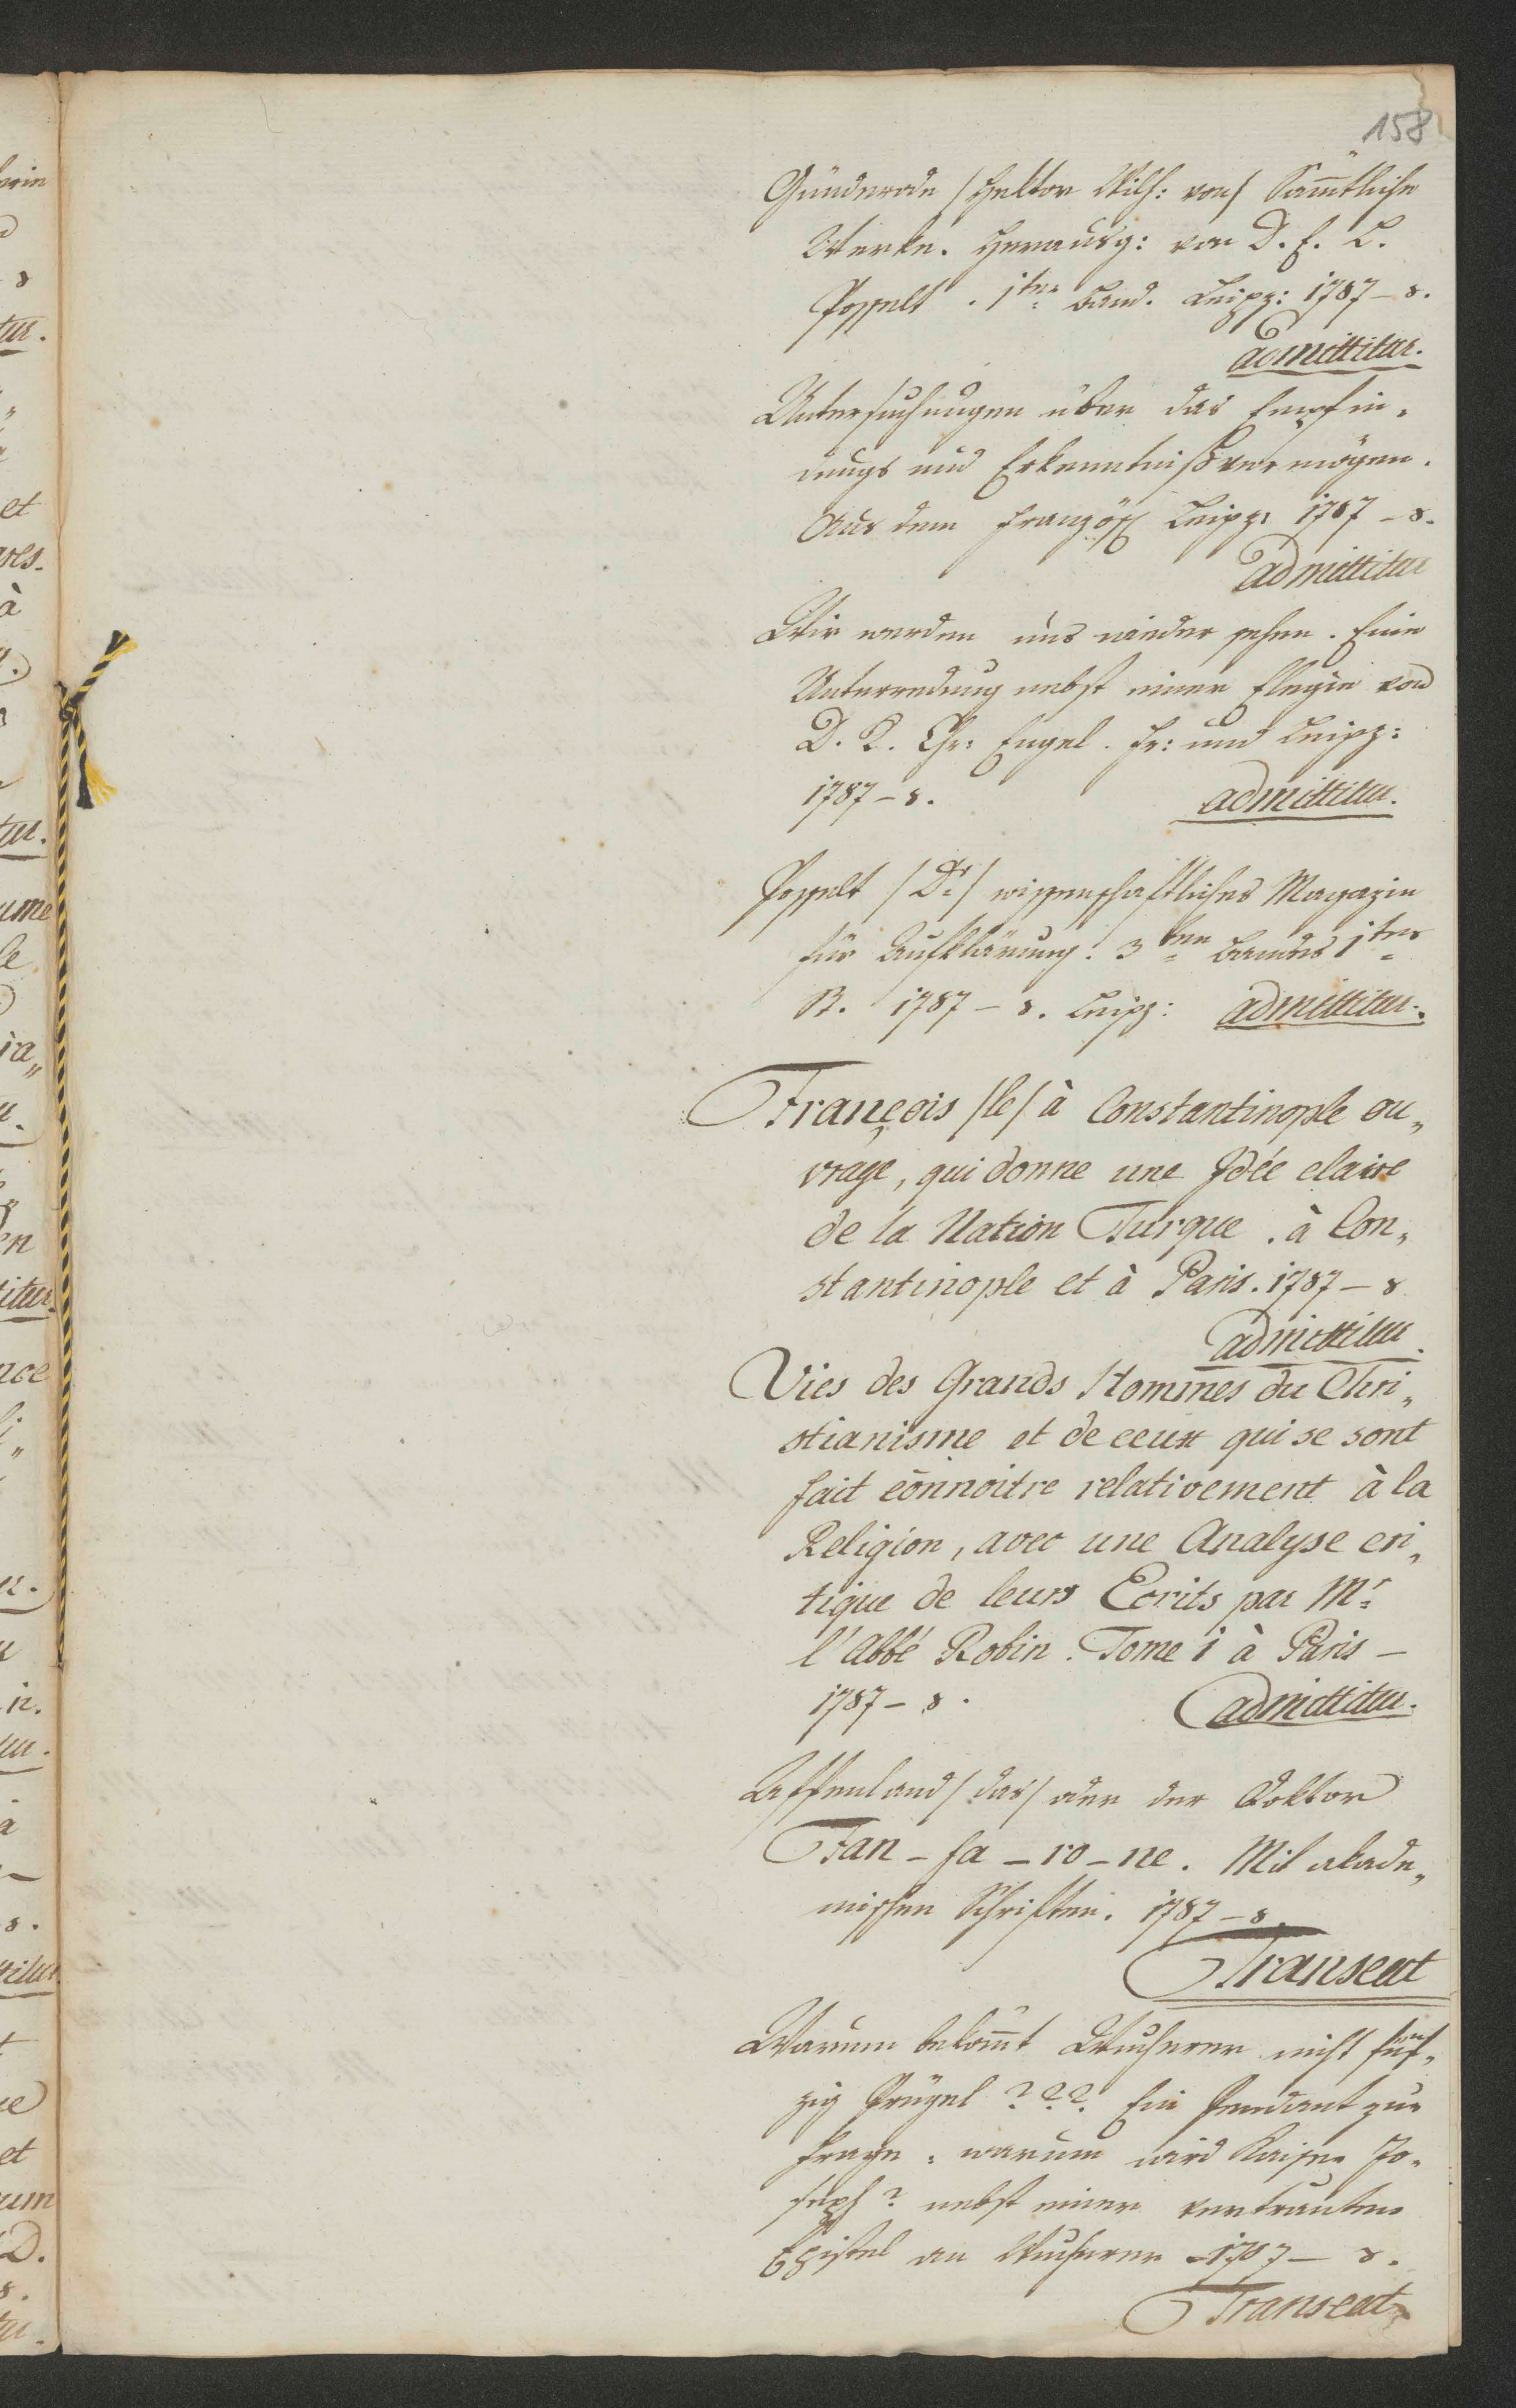 158
Günderode /Hektor Wilh: von/ Sämtliche
Werke. Herausg: von D. E. L.
Posselt. 1ter Band. Leipz: 1787-8.
admittitur.
Untersuchungen über das Empfin„
dungs und Erkenntnißvermögen.
Aus dem Französ Leipz: 1787-8.
admittitur
Wir werden uns wieder sehen. Eine
Unterredung nebst einer Elegie von
D. K. Chr: Engel. Fr: und Leipz:
1787-8. admittitur.
Posselt /Dr/ wissenschaftliches Magazin
für Aufklärung. 3ten Bandes 1tes
St. 1787-8. Leipz: admittitur.
François /le/ à Constantinople ou„
vrage, qui donne une Idée claire
de la Nation Turque. à Con„
stantinople et à Paris. 1787-8
admittitur.
Vies des Grands Hommes du Chri„
stianisme et de ceux qui se sont
fait connoitre relativement à la
Religion, avec une Analyse cri„
tique de leurs Ecrits par Mr
l'Abbé Robin. Tome 1 à Paris -
1787-8. admittitur.
Affenland /das/ oder der Doktor
Fan-fa-ro-ne. Mit akade„
mischen Schriften. 1787-8.
Transeat
Warum bekömt Wucherer nicht fünf„
zig Prügel??? Ein Pendant zur
Frage: warum wird Kaiser Jo„
seph? nebst einer vertrauten
Epistel an Wucherer. 1787-8.
Transeat